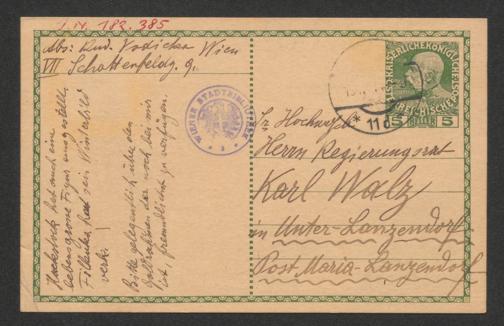 I.N. 182.385
Abs: Rud. Vodicka Wien
VII Schottenfeldg. 9.
hat auch eine
lebensgrosse Figur ausgestellt,
hat sein Winterbild
verk.!
Bitte gelegentlich über den
Goldrahmen der noch bei mir
ist, freundlichst zu verfügen.
WIENER STADTBIBLIOTHEK
KAISERLICHE KÖNIGLICHE
5 5
* 11
Sr. Hochwohl
Herrn Regierungsrat
Karl Walz
in Unter-Lanzendorf
Post Maria-Lanzendorf